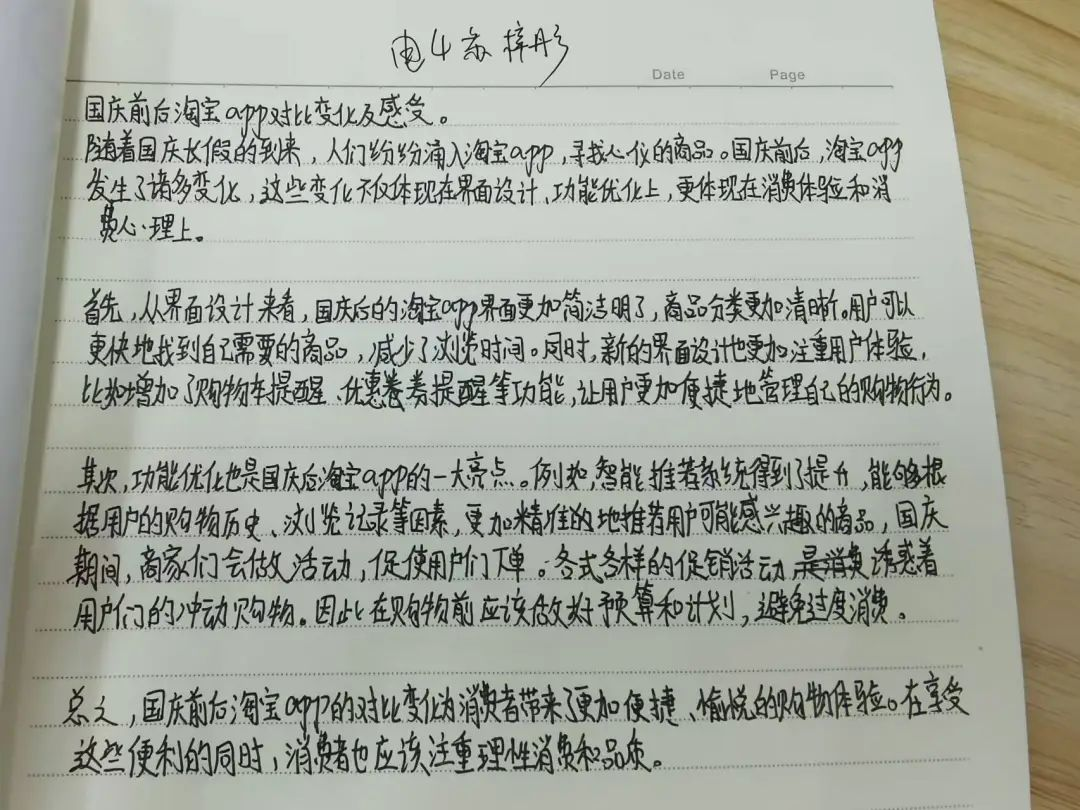 电4 苏梓彤
Date Page
国庆前后淘宝app对比变化及感受。
随着国庆长假的到来，人们纷纷涌入淘宝app，寻找心仪的商品。国庆前后，淘宝app
发生了诸多变化，这些变化不仅体现在界面设计、功能优化上，更体现在消费体验和消
费心理上。
首先，从界面设计来看，国庆后的淘宝app界面更加简洁明了，商品分类更加清晰。用户可以
更快地找到自己需要的商品，减少了浏览时间。同时，新的界面设计也更加注重用户体验，
比如增加了购物车提醒、优惠券提醒等功能，让用户更加便捷地管理自己的购物行为。
其次，功能优化也是国庆后淘宝app的一大亮点。例如，智能推荐系统得到了提升，能够根
据用户的购物历史、浏览记录等因素，更加精准的地推荐用户可能感兴趣的商品，国庆
期间，商家们会做活动，促使用户们下单。各式各样的促销活动诱惑着
用户们的冲动购物。因此在购物前应该做好预算和计划，避免过度消费。
总之，国庆前后淘宝app的对比变化为消费者带来了更加便捷、愉悦的购物体验。在享受
这些便利的同时，消费者也应该注重理性消费和品质。